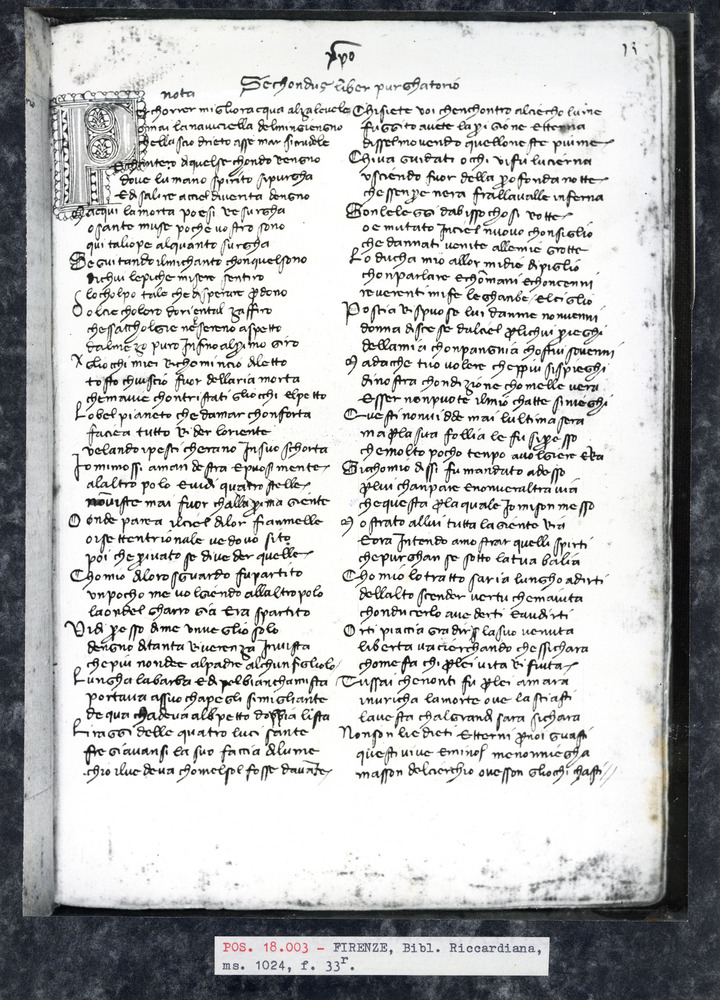 nota
Sechondus liber purghatorio
P er chorrer migliora cqua alza levele
omai la navicella del mio ingengno
che llascia drieto asse mar sicrudele
E chantero di quel sechondo rengno
dove lumano spirito si purgha
Edi salire al ciel diventa dengno
Ma cqui la morta poesi resurgha
o sante muse poche vostro sono
qui caliope alquanto surgha
Seguitando il mi chanto chon quel sono
di chui le piche misere sentiro
lo cholpo tale che disperar perdono
Dolcie choloro doriental zaffiro
che ssacchogliea nel sereno aspetto
dal mezo puro Infino al primo giro
Agliochi miei richomincio diletto
tosto chuscio fuor dellaria morta
che mavie chontristati gliochi el petto
Lo bel pianeto che damar chonforta
faciea tutto Rider loriente
velando i pesci cherano In sua schorta
Io mi mossi a man destra E puosi mente
alaltro polo E vidi quatro stelle
non viste mai fuor challa prima giente
Goder parea il ciel di lor fiammelle
o settentrionale vedovo sito
poi che privato se di veder quelle
Chomio da loro sguardo fu partito
un pocho me volgiendo allaltro polo
la onde l charro gia Era spartito
Vidi presso di me un veglio solo
dengno di tanta Riverenza In vista
che piu non dee al padre alchun figliolo
Lungha la barba E di pel biancha mista
portava a ssuo chapegli simigliante
de qua chadeva al petto doppia lista
Li raggi delle quatro luci sante
fregiavan si la suo faccia di lume
chio il vedeva chomel sol fosse davante
Chi siete voi che nchontro al ciecho fiume
fuggito avete la prigione etterna
dissel movendo quelle oneste piume
Chi va guidati o chi vi fu lucierna
usciendo fuor della profonda notte
che senpre nera fa lla valle inferna
Son le leggi dabisso chosi rotte
o e mutato In ciel nuovo chonsiglio
che dannati venite alle mie grotte
Lo ducha mio allor mi die di piglio
chon parlare E chon mani E chon cienni
reverenti mi fe le ghanbe El ciglio
Poscia rispuose lui da me non venni
donna sciese dal ciel per li chui prieghi
della mia chonpangnia chostui sovenni
Ma da che tuo volere che ppiu si spieghi
di nostra chondizione chom elle vera
Esser non puote il mio chatte si nieghi
Questi non vidde mai lultima sera
ma per la sua follia le fu si presso
che molto pocho tenpo a volgiere Era
Sichomio dissi fu mandato adesso
per lui chanpare E non vera altra via
che questa per la quale Io mi son messo
Mostrato a llui tutta la giente ria
Eora Intendo a mostrar quelli spirti
che purghan se sotto la tua balia
Chomio lo tratto saria lungho a dirti
dellalto sciender vertu che maiuta
chonduciерlo a vederti E a udirti
Or ti piaccia gradir la suo venuta
liberta va ciercando che ssi chara
chome sa chi per lei vita rifiuta
Tu ssai che non ti fu per lei amara
in uticha la morte ove lasciasti
la vesta chal gran di sara si chara
Non son li editti Etterni per noi guasti
che questi vive E minos me non niegha
ma sson del cierchio ove sson gliochi chasti
POS. 18.003 - FIRENZE, Bibl. Riccardiana,
ms. 1024, f. 33r.